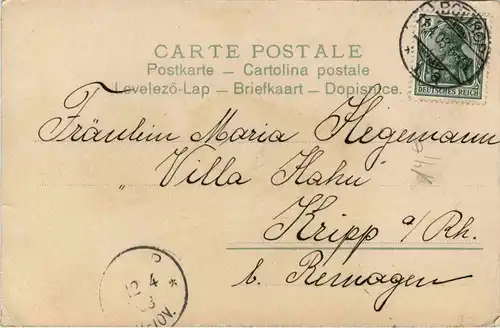 CARTE POSTALE
Postkarte — Cartolina postale
Levelező-Lap — Briefkaart — Dopisnice.
DEUTSCHES REICH
Fräulein Maria Hegemann
„Villa Hahn"
Kripp a/Rh.
b. Remagen
12 4